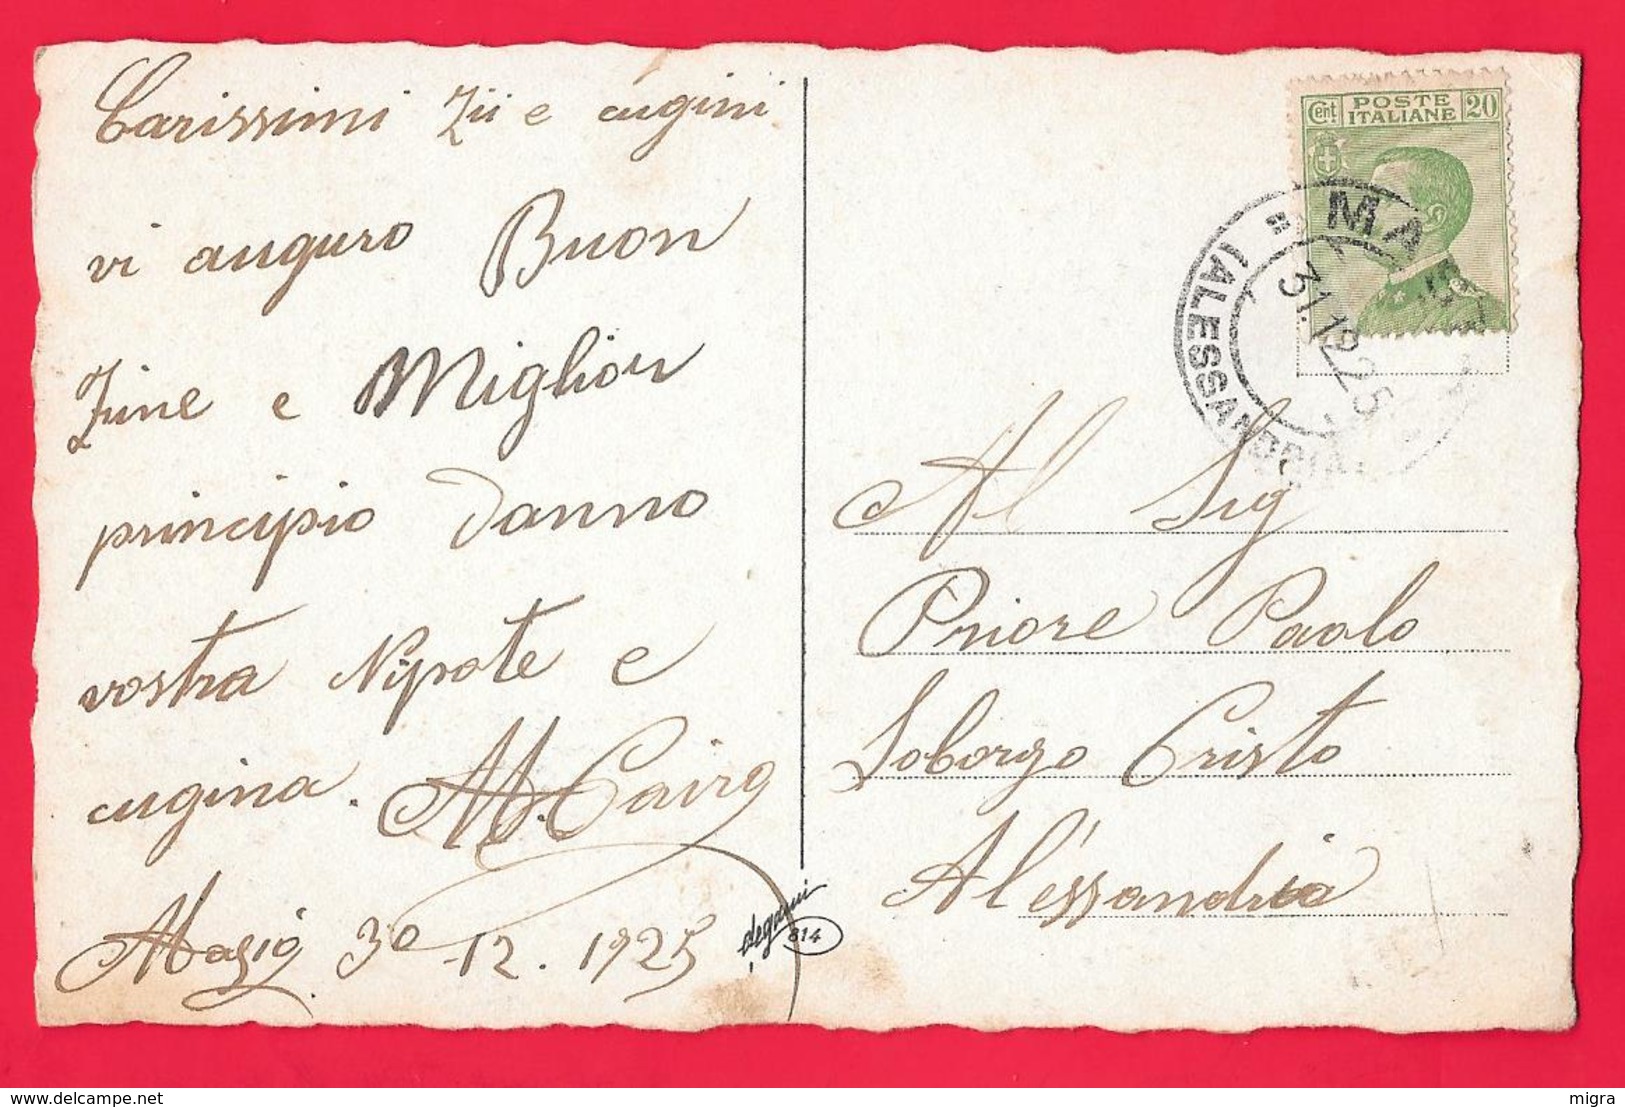 Carissimi Zii e cugini
vi auguro Buon
Fine e Miglior
principio Danno
vostra Nipote e
cugina. M. Cairo
Masio 30 12. 1925
degami
814
Cent POSTE ITALIANE 20
MA
31.12.25
(ALESSANDRIA)
Al Sig
Priore Paolo
Soborgo Cristo
Alessandria
delcampe.net
migra